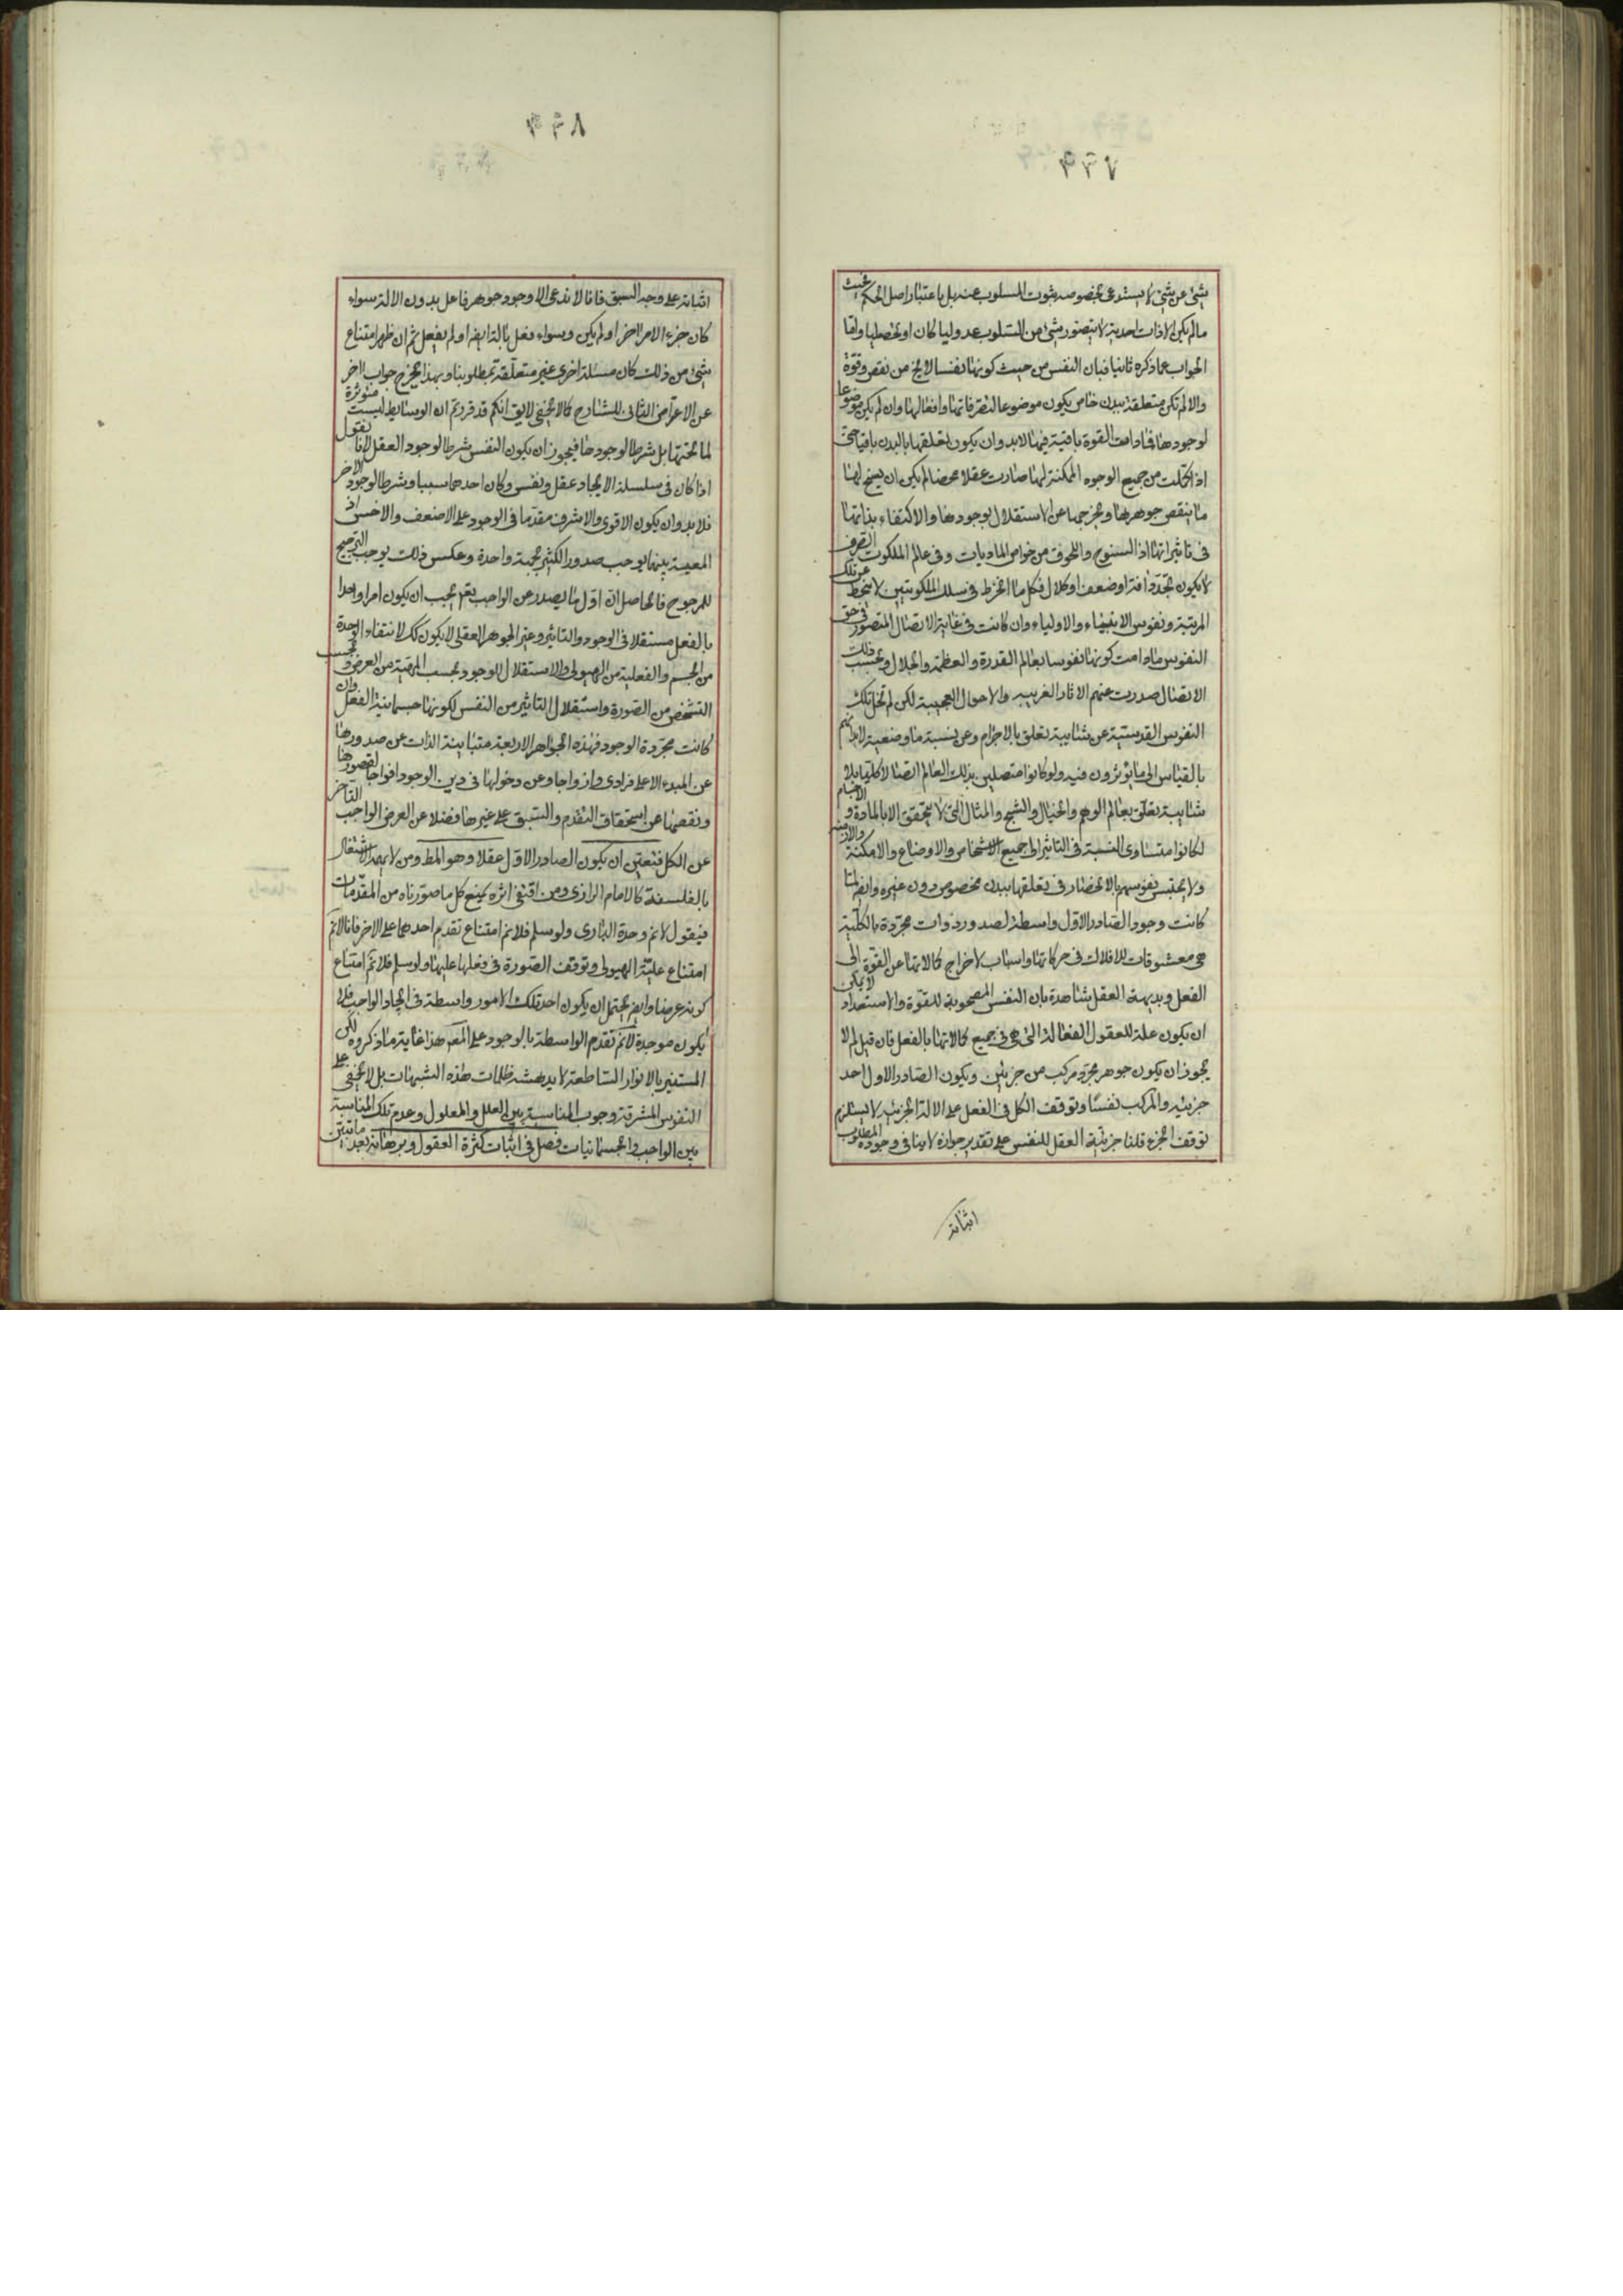 شئ عن شئ لا يستدعى بخصوصه ثبوت المسلوب عنه بل باعتبار اصل الحكم بحيث
ما لم يكن الا ذات احدية لا يتصور شئ من السلوب عدوليا كان او تحصليا واما
الجواب عما ذكره ثانيا فبان النفس من حيث كونها نفسا لا يخ من نقص وقوة
والا لم تكن متعلقة ببدن خاص يكون موضوعا لتصرفاتها وافعالها وان لم يكن موضوعا
لوجودها فما دامت القوة باقية فيها لا بد وان يكون تعلقها بالبدن باقيا حتى
اذا كملت من جميع الوجوه الممكنة لها صارت عقلا محضا لم يكن ان يسنح لها
ما ينقص جوهرها ويخرجها عن الاستقلال بوجودها والاكتفاء بذاتها
فى تاثيراتها اذ السنوح واللحوق من خواص الماديات وفى عالم الملكوت الصرف
لا يكون تجدد وافة او ضعف او كلال فكل ما انخرط فى سلك الملكوتيين لا ينحط عن تلك
المرتبة ونفوس الانبياء والاولياء وان كانت فى غاية الاتصال المتصور فى حق
النفوس ما دامت كونها نفوسا بعالم القدرة والعظمة والجلال وبحسب ذلك
الاتصال صدرت عنهم الاثار الغريبه والاحوال العجيبة لكن لم تخل تلك
النفوس القدسية عن شايبة تعلق بالاجرام وعن نسبة ما وضعية لابدانهم
بالقياس الى ما يؤثرون فيه ولو كانوا متصلين بذلك العالم اتصالا كليا بلا
شايبة تعلق بعالم الوهم والخيال والشبح والمثال التى لا يتحقق الا بالمادة و الاجسام
لكانوا متساوى النسبة فى التاثير الى جميع الاشخاص والاوضاع والامكنة والازمنه
ولا يحتبس نفوسهم بالانحصار فى تعلقها ببدن مخصوص دون غيره وايضا لما
كانت وجود الصادر الاول واسطة لصدور ذوات مجردة بالكلية
هى معشوقات للافلاك فى حركاتها واسباب لاخراج كمالاتها عن القوة الى
الفعل وبديهة العقل شاهدة بان النفس المصحوبة للقوة والاستعداد لا يمكن
ان يكون علة للعقول الفعالة التى هى فى جميع كمالاتها بالفعل فان قيل لم لا
يجوز ان يكون جوهر مجرد مركب من جزئين ويكون الصادر الاول احد
جزئيه والمركب نفسا وتوقف الكل فى الفعل على الالة الجزئيه لا يستلزم
توقف الجزء قلنا جزئية العقل للنفس على تقدير جوازه لا ينافى وجوده المطلوب
اثباته
٨٣٣
اثباته على وجه السبق فانا لا ندعى الا وجود جوهر فاعل بدون الالة سواء
كان جزء الامر اخر او لم يكن وسواء فعل بالة ايضا او لم يفعل ثم ان ظهر امتناع
شئ من ذلك كان مسئلة اخرى غير متعلقة بمطلوبنا وبهذا يخرج جواب اخر
عن الاعتراض الثانى للشارح كما لا يخفى لا يق انكم قد قررتم ان الوسايط ليست متوثرة
لما تحتها بل شرطا لوجودها فيجوز ان يكون النفس شرطا لوجود العقل لانا نقول
اذا كان فى سلسلة الايجاد عقل ونفس وكان احدهما سببا وشرطا لوجود الاخر
فلا بد وان يكون الاقوى والاشرف مقدما فى الوجود على الاضعف والاخس اذ
المعية بينها يوجب صدور الكثير بجهة واحدة وعكس ذلك يوجب الترجيح
للمرجوح فالحاصل ان اول ما يصدر عن الواجب تعم يجب ان يكون امرا واحدا
بالفعل مستقلا فى الوجود والتاثير وغير الجوهر العقلى لا يكون كك لانتفاء الوحدة
من الجسم والفعلية من الهيولى والاستقلال للوجود بحسب المهية من العرض و بحسب
التشخص من الصورة واستقلال التاثير من النفس لكونها جسمانية الفعل وان
كانت مجردة الوجود فهذه الجواهر الاربعة متباينة الذات عن صدورها
عن المبدء الاعلى فرادى وازواجا وعن دخولها فى دين الوجود افواجا لقصورها
ونقصها عن استحقاق التقدم والسبق على غيرها فضلا عن العرض الواجب التاخر
عن الكل فتعين ان يكون الصادر الاول عقلا وهو المط ومن لا يهمه الاشتغال
بالفلسفة كالامام الرازى ومن اقتفى اثره يمنع كل ما صورناه من المقدمات
فيقول لا نم وحدة البارى ولو سلم فلا نم امتناع تقدم احدهما على الاخر فانا لا نم
امتناع علية الهيولى وتوقف الصورة فى فعلها عليها ولو سلم فلا نم امتناع
كونه عرضا وايضا يحتمل ان يكون احد تلك الامور واسطة فى ايجاد الواجب فلا
يكون موجدة لا نم تقدم الواسطة بالوجود على المعم هذا غاية ما ذكروه لكن
المستنير بالانوار الساطعة لا يدهشه ظلمات هذه الشبهات بل لا يخفى على
النفوس المشرقة وجوب المناسبة بين العلل والمعلول وعدم تلك المناسبة
بين الواجب والجسمانيات فصل فى اثبات كثرة العقول وبرهانه بعد ما تبين